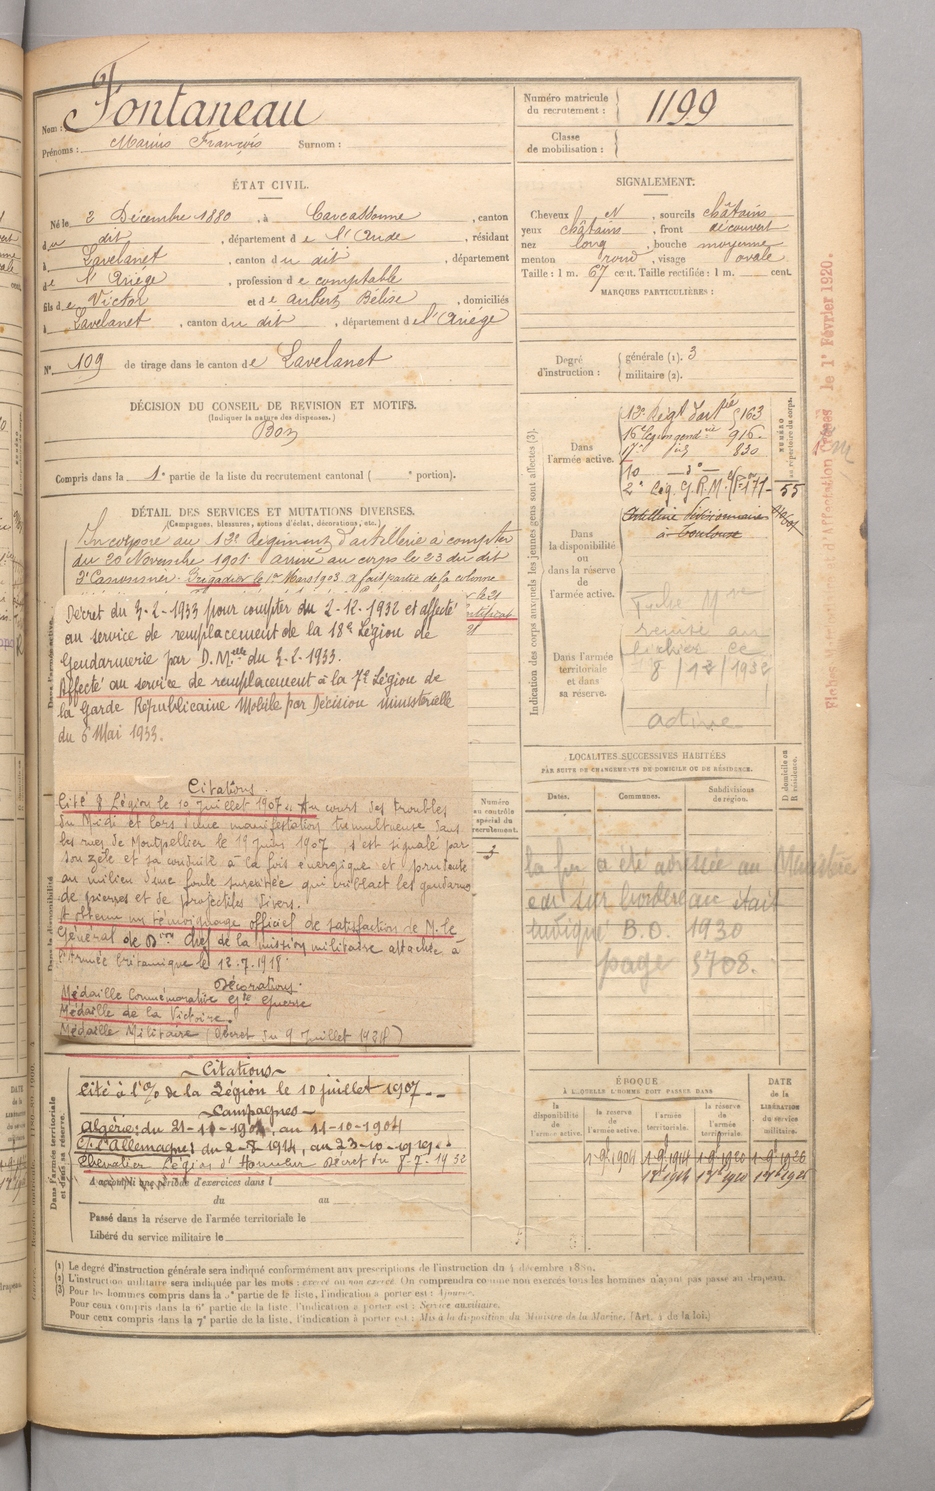 Nom : Fontaneau
Prénoms : Marius François Surnom :
Numéro matricule du recrutement : 1199
Classe de mobilisation :
ÉTAT CIVIL.
Né le 2 Décembre 1880, à Carcassonne, canton
du dit, département de l'Aude, résidant
à Lavelanet, canton du dit, département
de l'Ariège, profession de comptable
fils de Victor et de Aubert Bélise, domiciliés
à Lavelanet, canton du dit, département de l'Ariège
N° 109 de tirage dans le canton de Lavelanet
SIGNALEMENT.
Cheveux N, sourcils châtains
yeux châtains, front découvert
nez long, bouche moyenne
menton rond, visage ovale
Taille : 1 m. 67 cent. Taille rectifiée : 1 m. cent.
MARQUES PARTICULIÈRES :
Degré d'instruction : générale (1). 3
militaire (2).
DÉCISION DU CONSEIL DE REVISION ET MOTIFS.
(Indiquer la nature des dispenses.)
Bon
Compris dans la 1e partie de la liste du recrutement cantonal ( e portion).
DÉTAIL DES SERVICES ET MUTATIONS DIVERSES.
(Campagnes, blessures, actions d'éclat, décorations, etc.)
Incorporé au 13e Régiment d'artillerie à compter
du 20 Novembre 1901. Arrivé au corps le 23 du dit
2e Canonnier. Brigadier le 1er Mars 1903. A fait partie de la colonne
Décret du 3-2-1933 pour compter du 2-12-1932 et affecté
au service de remplacement de la 18e Légion de
Gendarmerie par D.Melle du 3-2-1933.
Affecté au service de remplacement à la 7e Légion de
la Garde Républicaine Mobile par Décision ministérielle
du 6 Mai 1933.
Citations
Cité à Légion le 10 Juillet 1907. Au cours des troubles
du Midi et lors d'une manifestation tumultueuse dans
les rues de Montpellier le 19 juin 1907, s'est signalé par
son zèle et sa conduite à la fois énergique et prudente
au milieu d'une foule surexcitée qui criblait les gendarmes
de pierres et de projectiles divers.
A obtenu un témoignage officiel de satisfaction de M. le
Général de Don chef de la mission militaire attachée à
l'Armée britannique le 12.7.1918
Décorations.
Médaille Commémorative Gde Guerre
Médaille de la Victoire.
Médaille Militaire (Décret du 9 Juillet 19
Citations
Cité à l'O/ de la Légion le 10 juillet 1907
Campagnes
Algérie : du 21-11-190 au 11-10-1904
Ct. l'Allemagne : du 2-8-1914, au 23-10-1919
Chevalier Légion d'Honneur Décret du 8-7-1932
A accompli une période d'exercices dans l
du au
Passé dans la réserve de l'armée territoriale le
Libéré du service militaire le
Dans l'armée territoriale et dans sa réserve.
Indication des corps auxquels les jeunes gens sont affectés (3).
NUMÉRO au répertoire du corps.
Dans l'armée active.
13e Régt d'artrie 163
16e Légion gendrie 916
17e 830
10 — do —
2e Lég. G.R.M. 171 - 55
Dans la disponibilité ou dans la réserve de l'armée active.
Artillerie
à Toulouse
Dans l'armée territoriale et dans sa réserve.
Fiche Mle
remise au
fichier ce
8 / 12 / 1932
active
LOCALITÉS SUCCESSIVES HABITÉES
PAR SUITE DE CHANGEMENTS DE DOMICILE OU DE RÉSIDENCE.
D domicile ou R résidence.
Dates. Communes. Subdivisions de région.
Numéro au contrôle spécial du recrutement.
3
la fin a été adressée au Ministère
B.O. 1930
page 3708.
ÉPOQUE
À LAQUELLE L'HOMME DOIT PASSER DANS
DATE de la LIBÉRATION du service militaire.
la disponibilité de l'armée active. la réserve de l'armée active. l'armée territoriale. la réserve de l'armée territoriale.
1-9-1904 1-9-1914 1-9-1920 1-9-1926
(1) Le degré d'instruction générale sera indiqué conformément aux prescriptions de l'instruction du 4 décembre 1889.
(2) L'instruction militaire sera indiquée par les mots : exercé ou non exercé. On comprendra comme non exercés tous les hommes n'ayant pas passé au drapeau.
(3) Pour les hommes compris dans la 2e partie de la liste, l'indication à porter est : Ajourné.
Pour ceux compris dans la 6e partie de la liste, l'indication à porter est : Service auxiliaire.
Pour ceux compris dans la 7e partie de la liste, l'indication à porter est : Mis à la disposition du Ministre de la Marine. (Art. 4 de la loi.)
le 1er Février 1920.